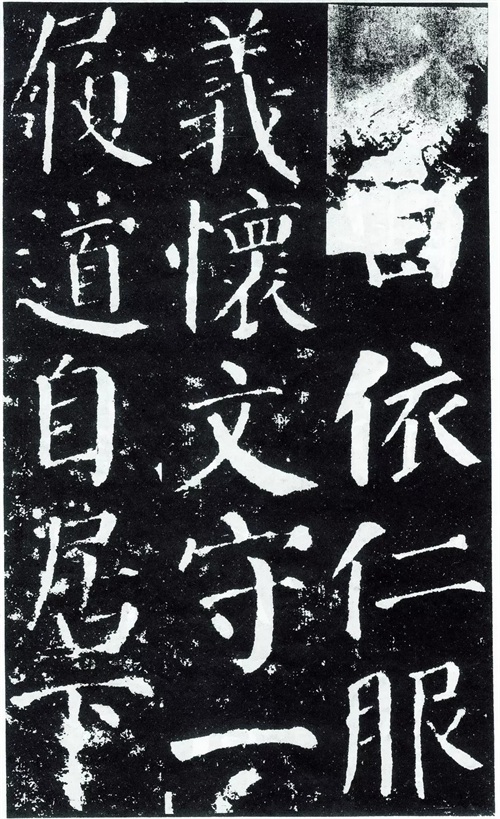 依仁服
義懷文守一
履道自居下